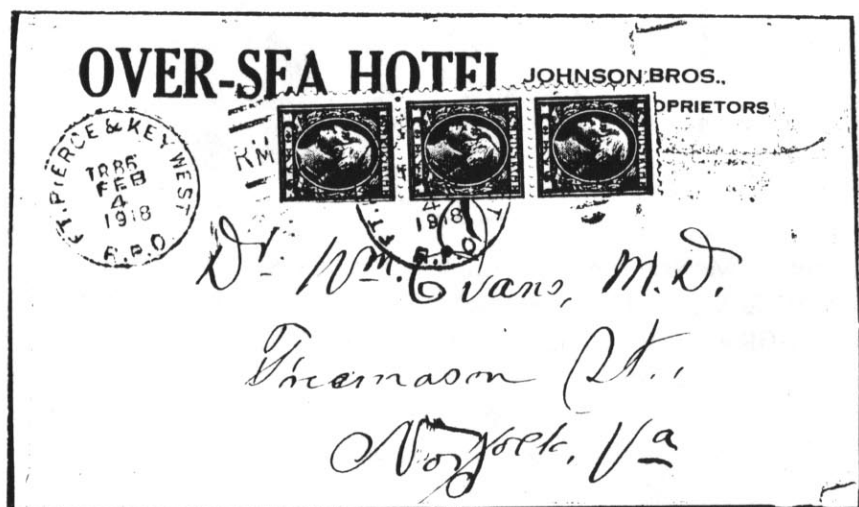 OVER-SEA HOTEL
JOHNSON BROS.,
OPRIETORS
FT. PIERCE & KEY WEST
TR 85
FEB
4
1918
R.P.O
RM
4
1918
R.P.O
Dr Wm. Evans, M.D.
Freemason St.,
Norfolk, Va